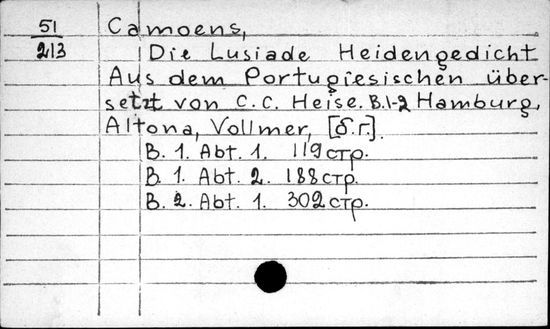 51
213
Camoens,
Die Lusiade Heidengedicht
Aus dem Portugiesischen über-
setzt von C.C. Heise. B.1-2 Hamburg,
Altona, Vollmer, [б.г.].
B. 1. Abt. 1. 119 стр.
B. 1. Abt. 2. 188 стр.
B. 2. Abt. 1. 302 стр.